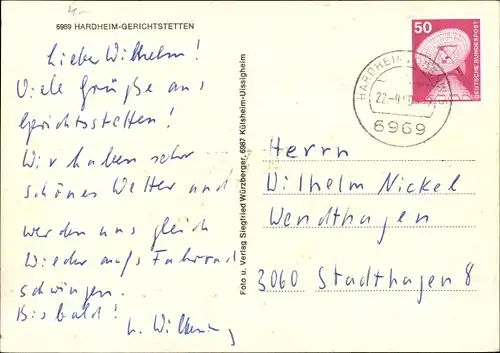 4.-
6969 HARDHEIM-GERICHTSTETTEN
Lieber Wilhelm!
Viele Grüße aus
Gerichtsstetten!
Wir haben sehr
schönes Wetter und
werden uns gleich
wieder aufs Fahrrad
schwingen.
Bis bald!
Foto u. Verlag Siegfried Würzberger, 6987 Külsheim-Uissigheim
50
DEUTSCHE BUNDESPOST
HARDHEIM
22.-9
6969
Herrn
Wilhelm Nickel
Wendthagen
3060 Stadthagen 8